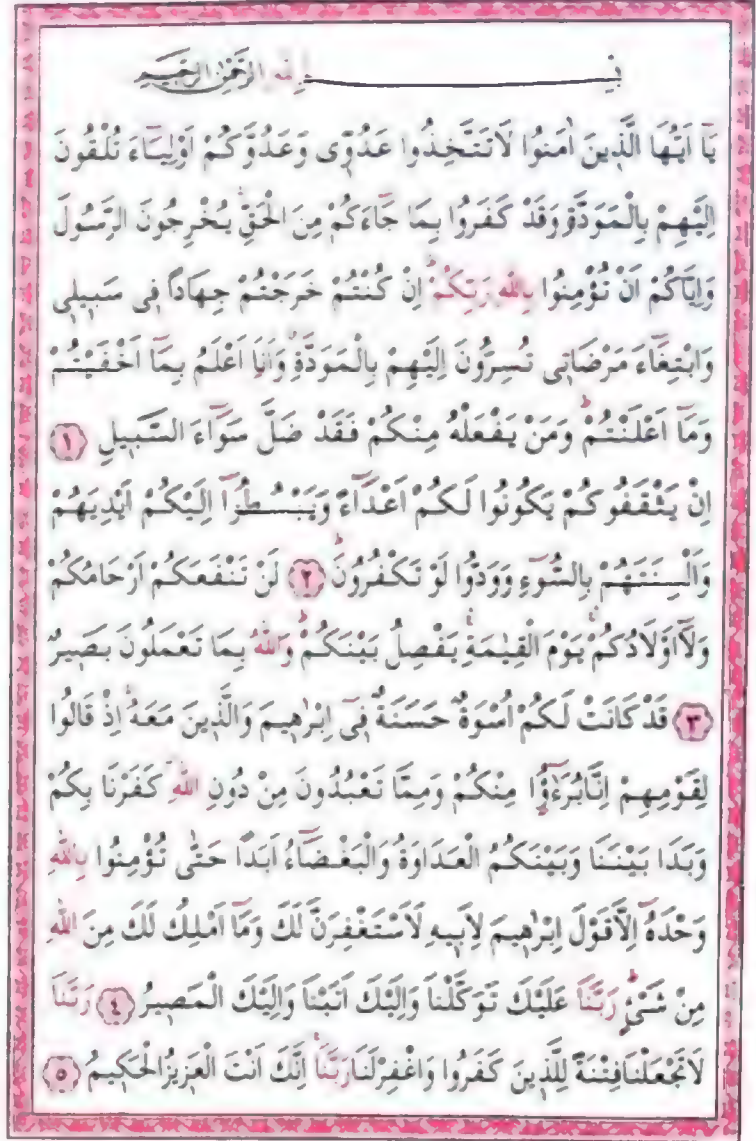 بِسْمِ اللّٰهِ الرَّحْمٰنِ الرَّحِيمِ
يَٓا اَيُّهَا الَّذِينَ اٰمَنُوا لَا تَتَّخِذُوا عَدُوّ۪ى وَعَدُوَّكُمْ اَوْلِيَٓاءَ تُلْقُونَ
اِلَيْهِمْ بِالْمَوَدَّةِ وَقَدْ كَفَرُوا بِمَا جَٓاءَكُمْ مِنَ الْحَقِّۚ يُخْرِجُونَ الرَّسُولَ
وَاِيَّاكُمْ اَنْ تُؤْمِنُوا بِاللّٰهِ رَبِّكُمْۜ اِنْ كُنْتُمْ خَرَجْتُمْ جِهَادًا ف۪ى سَب۪يل۪ى
وَابْتِغَٓاءَ مَرْضَات۪ى تُسِرُّونَ اِلَيْهِمْ بِالْمَوَدَّةِۗ وَاَنَا۬ اَعْلَمُ بِمَٓا اَخْفَيْتُمْ
وَمَٓا اَعْلَنْتُمْۜ وَمَنْ يَفْعَلْهُ مِنْكُمْ فَقَدْ ضَلَّ سَوَٓاءَ السَّب۪يلِ ﴿١﴾
اِنْ يَثْقَفُوكُمْ يَكُونُوا لَكُمْ اَعْدَٓاءً وَيَبْسُطُٓوا اِلَيْكُمْ اَيْدِيَهُمْ
وَاَلْسِنَتَهُمْ بِالسُّٓوءِ وَوَدُّوا لَوْ تَكْفُرُونَۜ ﴿٢﴾ لَنْ تَنْفَعَكُمْ اَرْحَامُكُمْ
وَلَٓا اَوْلَادُكُمْۚ يَوْمَ الْقِيٰمَةِۚ يَفْصِلُ بَيْنَكُمْۜ وَاللّٰهُ بِمَا تَعْمَلُونَ بَص۪يرٌ
﴿٣﴾ قَدْ كَانَتْ لَكُمْ اُسْوَةٌ حَسَنَةٌ ف۪ٓى اِبْرٰه۪يمَ وَالَّذ۪ينَ مَعَهُۚ اِذْ قَالُوا
لِقَوْمِهِمْ اِنَّا بُرَءٰٓؤُ۬ا مِنْكُمْ وَمِمَّا تَعْبُدُونَ مِنْ دُونِ اللّٰهِۘ كَفَرْنَا بِكُمْ
وَبَدَا بَيْنَنَا وَبَيْنَكُمُ الْعَدَاوَةُ وَالْبَغْضَٓاءُ اَبَدًا حَتّٰى تُؤْمِنُوا بِاللّٰهِ
وَحْدَهُٓ اِلَّا قَوْلَ اِبْرٰه۪يمَ لِاَب۪يهِ لَاَسْتَغْفِرَنَّ لَكَ وَمَٓا اَمْلِكُ لَكَ مِنَ اللّٰهِ
مِنْ شَىْءٍۜ رَبَّنَا عَلَيْكَ تَوَكَّلْنَا وَاِلَيْكَ اَنَبْنَا وَاِلَيْكَ الْمَص۪يرُ ﴿٤﴾ رَبَّنَا
لَا تَجْعَلْنَا فِتْنَةً لِلَّذ۪ينَ كَفَرُوا وَاغْفِرْ لَنَا رَبَّنَاۚ اِنَّكَ اَنْتَ الْعَز۪يزُ الْحَك۪يمُ ﴿٥﴾